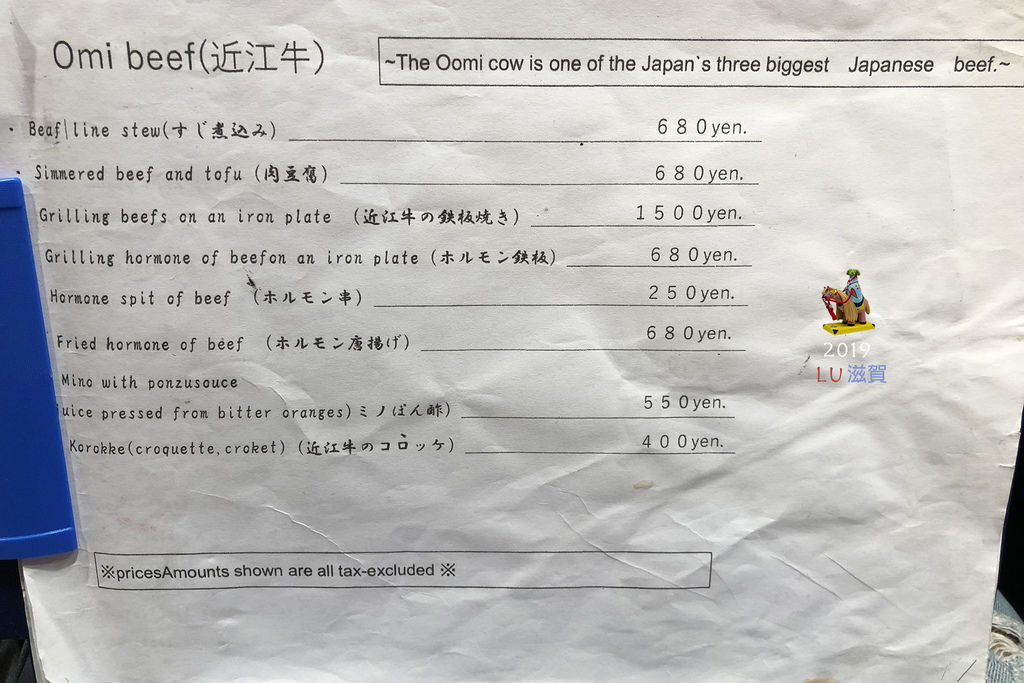 Omi beef(近江牛)
~The Oomi cow is one of the Japan`s three biggest Japanese beef.~
・Beaf|line stew(すじ煮込み) 680yen.
・Simmered beef and tofu (肉豆腐) 680yen.
Grilling beefs on an iron plate (近江牛の鉄板焼き) 1500yen.
Grilling hormone of beefon an iron plate (ホルモン鉄板) 680yen.
Hormone spit of beef (ホルモン串) 250yen.
Fried hormone of beef (ホルモン唐揚げ) 680yen.
Mino with ponzusouce
juice pressed from bitter oranges)ミノぽん酢) 550yen.
Korokke(croquette,croket) (近江牛のコロッケ) 400yen.
2019
LU滋賀
※pricesAmounts shown are all tax-excluded ※